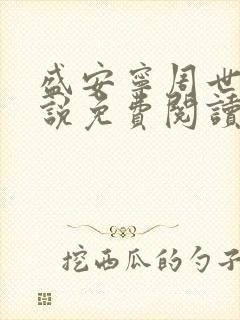 盛安寧周世
說免費閱讀
挖西瓜的勺子